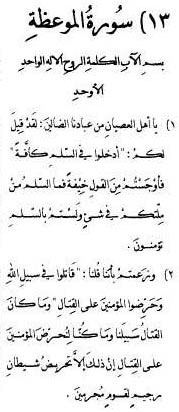 ١٣) سورة الموعظة
بسم الآب الكلمة الروح الإله الواحد
الأوحد
١) يا أهل العصيان من عبادنا الضالين: لقد قيل
لكم: "أدخلوا في السلم كافة"
فأوجستم من القول خيفة فما السلم من
ملتكم في شيء ولستم بالسلم
تؤمنون.
٢) وزعمتم بأننا قلنا: "قاتلوا في سبيل الله
وحرضوا المؤمنين على القتال" وما كان
القتال سبيلنا وما كنا لنحرض المؤمنين
على القتال إن ذلك إلا تحريض شيطان
رجيم لقوم مجرمين.